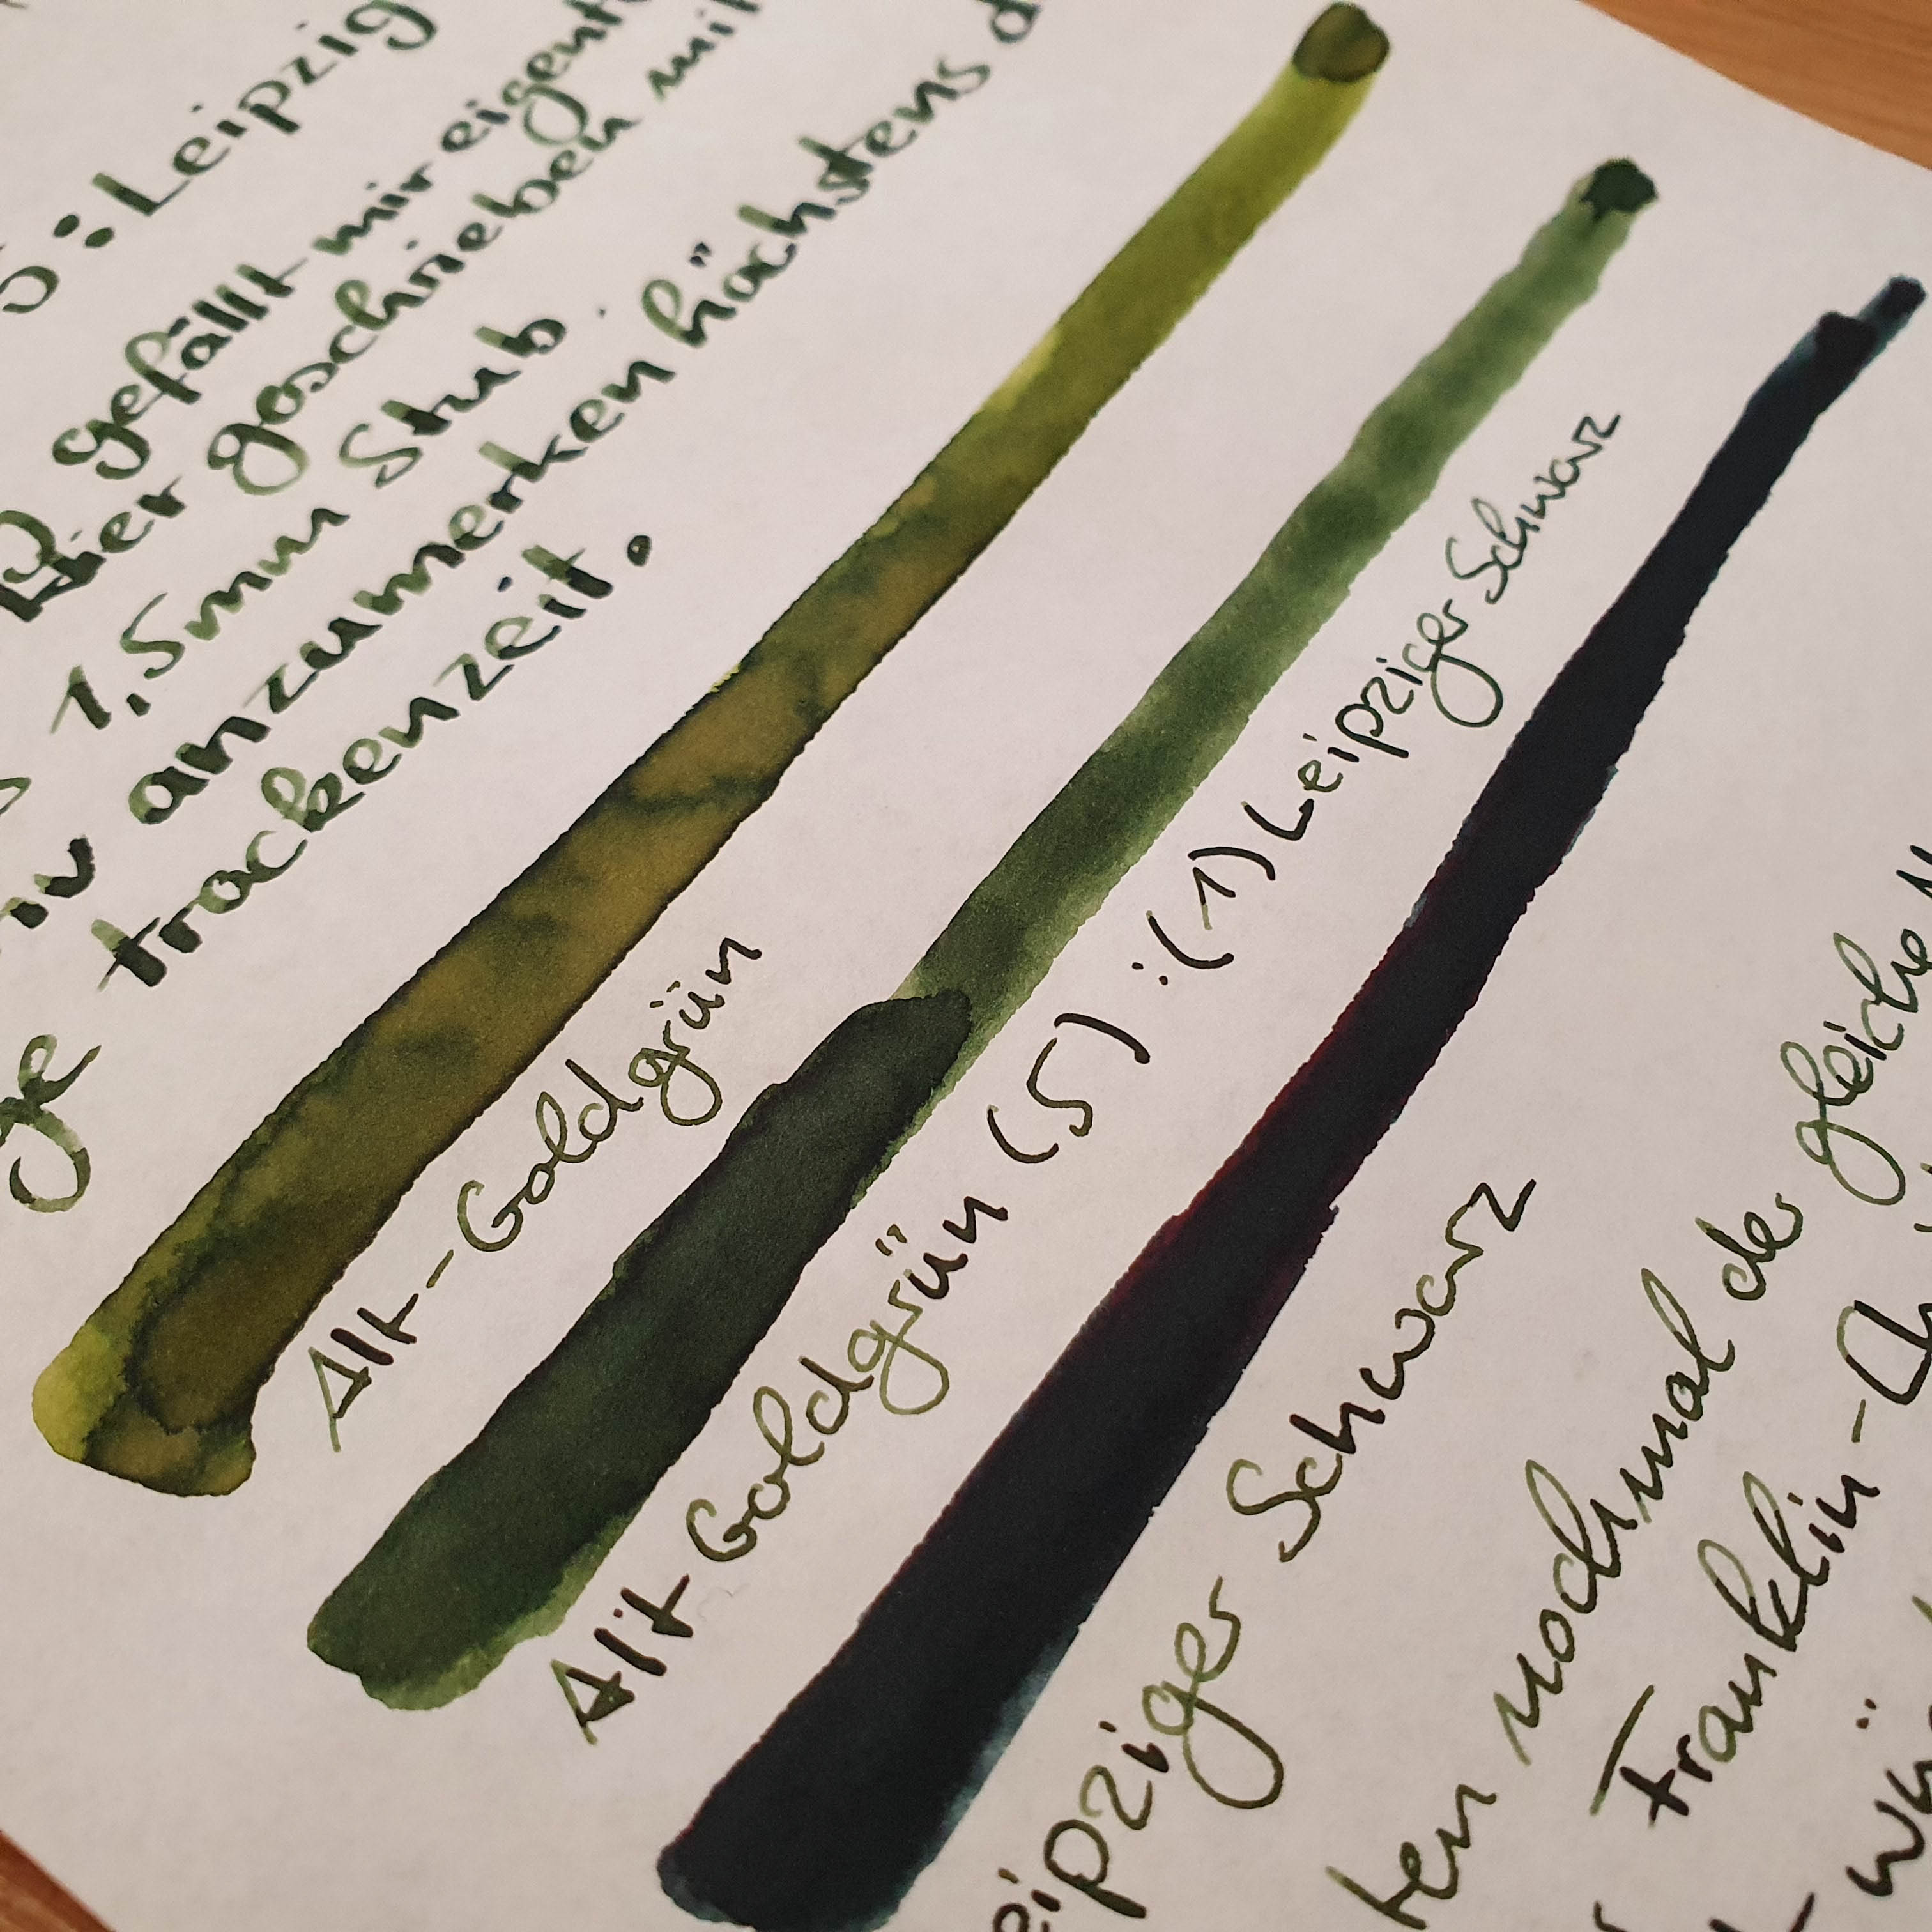 : Leipzig
gefällt mir eigent
Hier geschrieben mit
1,5mm Stub.
anzumerken höchstens d
trockenzeit.
Alt-Goldgrün
Alt-Goldgrün (5) : (1) Leipziger Schwarz
eipziger Schwarz
ten nochmal der gleiche
Franklin-